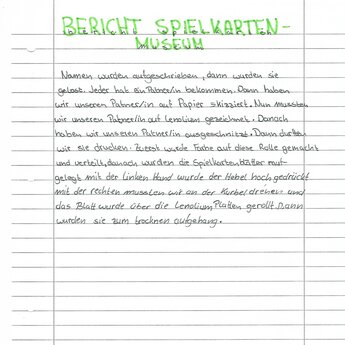 BERICHT SPIELKARTEN-
MUSEUM
Namen wurden aufgeschrieben, dann wurden sie
gelost. Jeder hat ein Patner/in bekommen. Dann haben
wir unseren Patner/in auf Papier skizziert. Nun mussten
wir unseren Patner/in auf Lenolium gezeichnet. Danach
haben wir unseren Patner/in ausgeschnitzt. Dann durften
wir sie drucken. Zuerst wurde Farbe auf diese Rolle gemacht
und verteilt, danach wurden die Spielkartenblätter auf-
gelegt mit der linken Hand wurde der Hebel hoch gedrückt
mit der rechten mussten wir an der Kurbel drehen und
das Blatt wurde über die Lenolium Platten gerollt. Dann
wurden sie zum trocknen aufgehang.